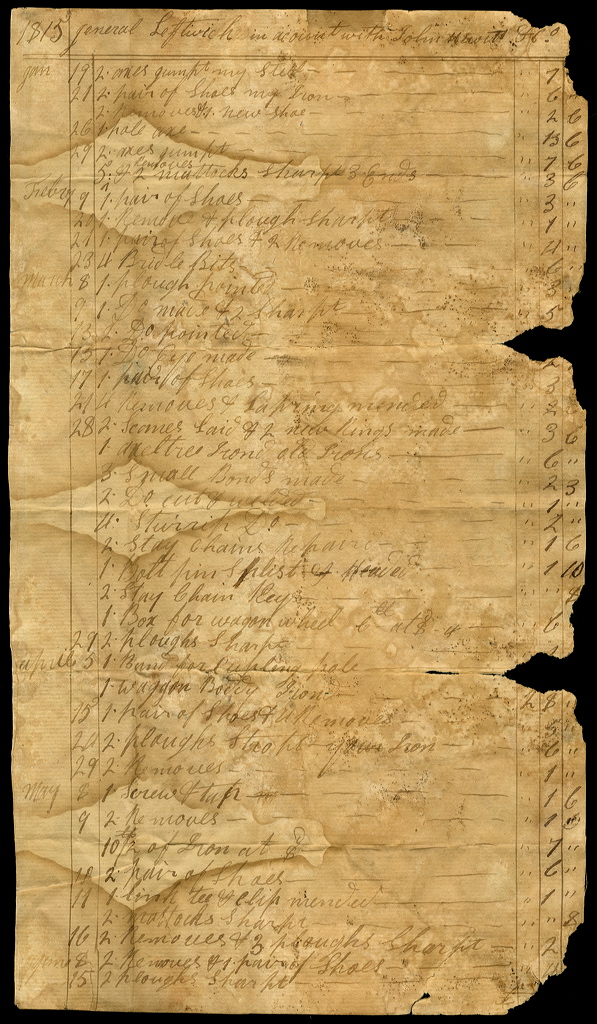 1815 general Leftwich in acount with John
Jan 19 2 axes jumpt my Steel 7 "
21 2 pair of Shoes my Iron 6 "
2 Removes & 1 new Shoe 2 6
26 1 pole axe 13 6
29 2 axes jumpt 7 6
Removes & 2 mattocks Sharpt 3 Ends 3 6
9 1 pair of Shoes 3 "
20 1 Remove & plough Sharpt 1 "
21 1 pair of Shoes & 2 Removes 4 "
23 4 Bridle Bits 6 "
March 8 1 plough pointed 3
9 1 Do made & 2 Sharpt 5
13 2 Do pointed
15 1 Do Eye made
17 1 pair of Shoes 3
21 4 Removes & mended 2 "
28 2 laid & 2 new Rings made 3 6
1 axeltree Irond old Irons 6 "
3 Small Bonds made 2 3
2 Do cut & welded 1 "
4 Stirrup Do 2 "
2 Stay Chains Repaired 1 6
1 Bolt pin & 1 10
2 Stay Chain Keys 8
1 Box for wagon wheel at 6 "
29 2 ploughs Sharpt
april 5 1 Band for Cupling pole
1 waggon Bodey Irond 2 8 "
15 1 pair of Shoes & 4 Removes 5 "
20 2 ploughs your Iron 6 "
29 2 Removes 1 "
May 8 1 Screw & 1 6
9 2 Removes 1 "
10 of Iron at 7 "
2 pair of Shoes 6 "
11 1 link tee & clip mended 1 "
2 Mattocks Sharpt 8
16 2 Removes & 3 ploughs Sharpt 2 "
8 2 Removes & 1 pair of Shoes
15 2 ploughs Sharpt